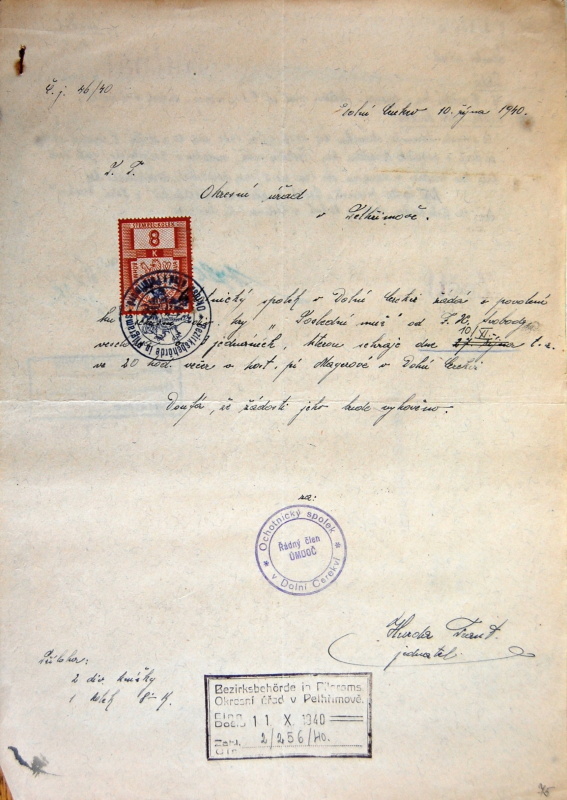 Č. j. 46/40.
Dolní Cerekev 10. října 1940.
Okresní úřad
v Pelhřimově.
STEMPEL-KOLEK
8
K
Bezirksbehörde in Pilgrams
spolek v Dolní Cerekvi žádá o povolení
hry „Poslední muž" od F. X. Svobody
10 XI.
jednáních, kterou sehraje dne 27. října t. r.
ve 20 hod. večer v host. pí Mayerové v Dolní Cerekvi.
Doufá, že žádosti jeho bude vyhověno.
za:
Ochotnický spolek
Řádný člen
ÚMDOČ
v Dolní Cerekvi
jednatel.
Příloha:
2 div. knížky
1 kolek 8 K.
Bezirksbehörde in Pilgrams.
Okresní úřad v Pelhřimově.
Eing.
Došlo 11 X 1940
Zahl.
Čís. 2/256/40.